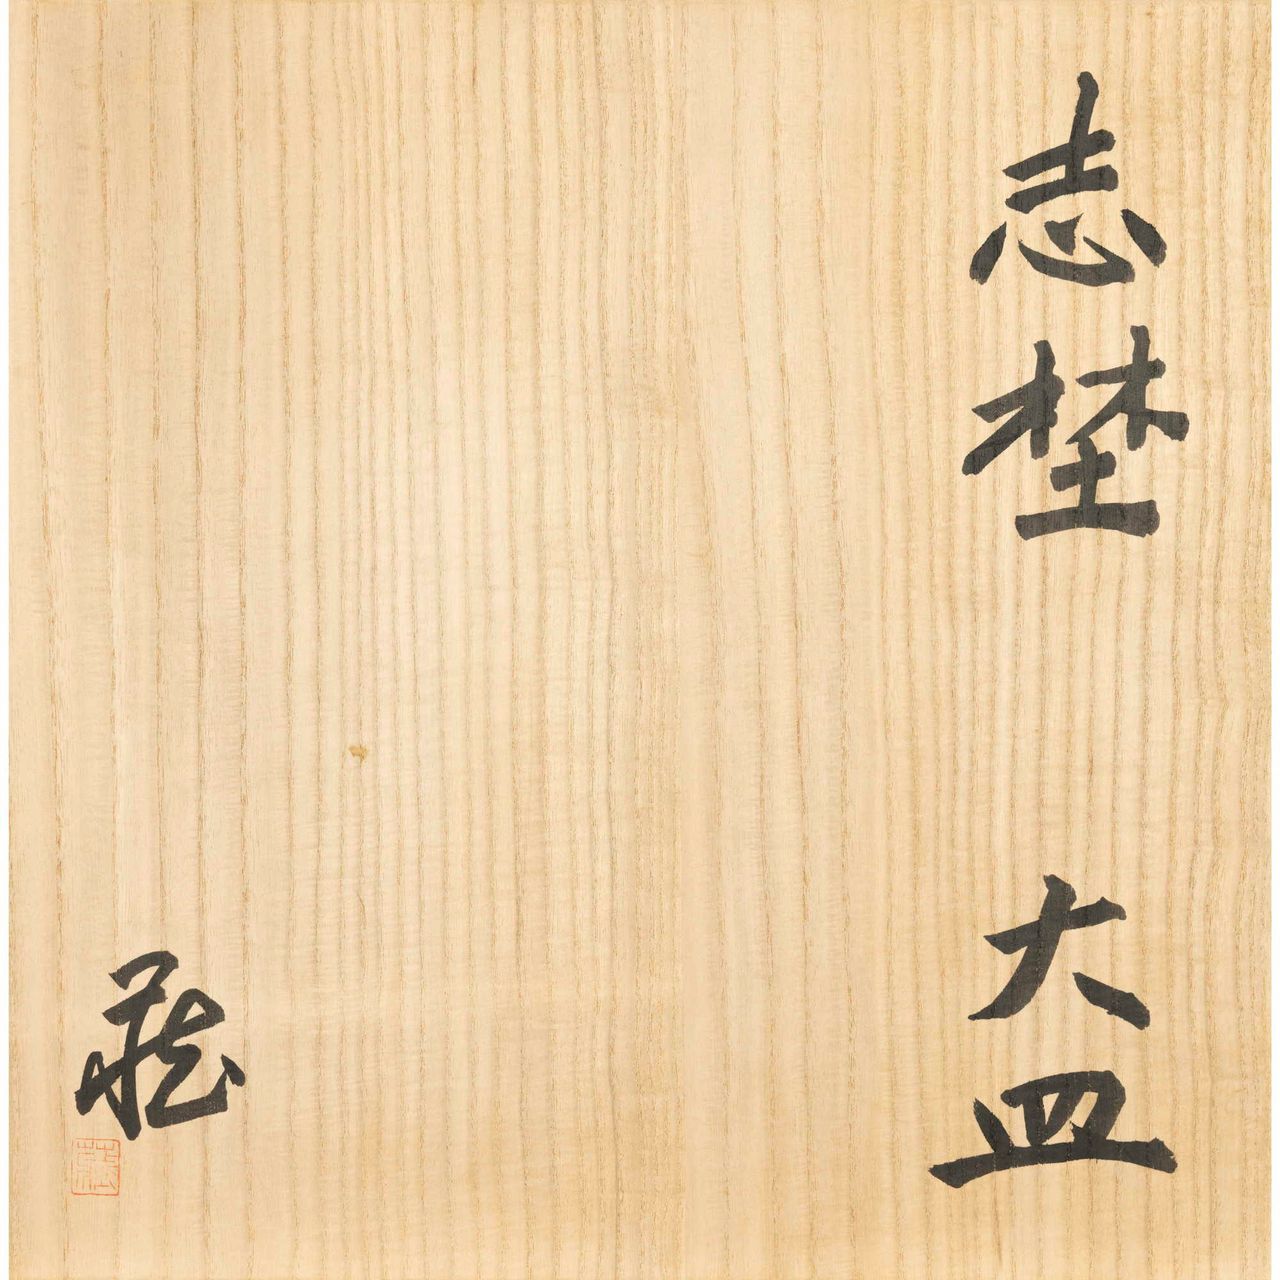 志埜 大皿
蔵